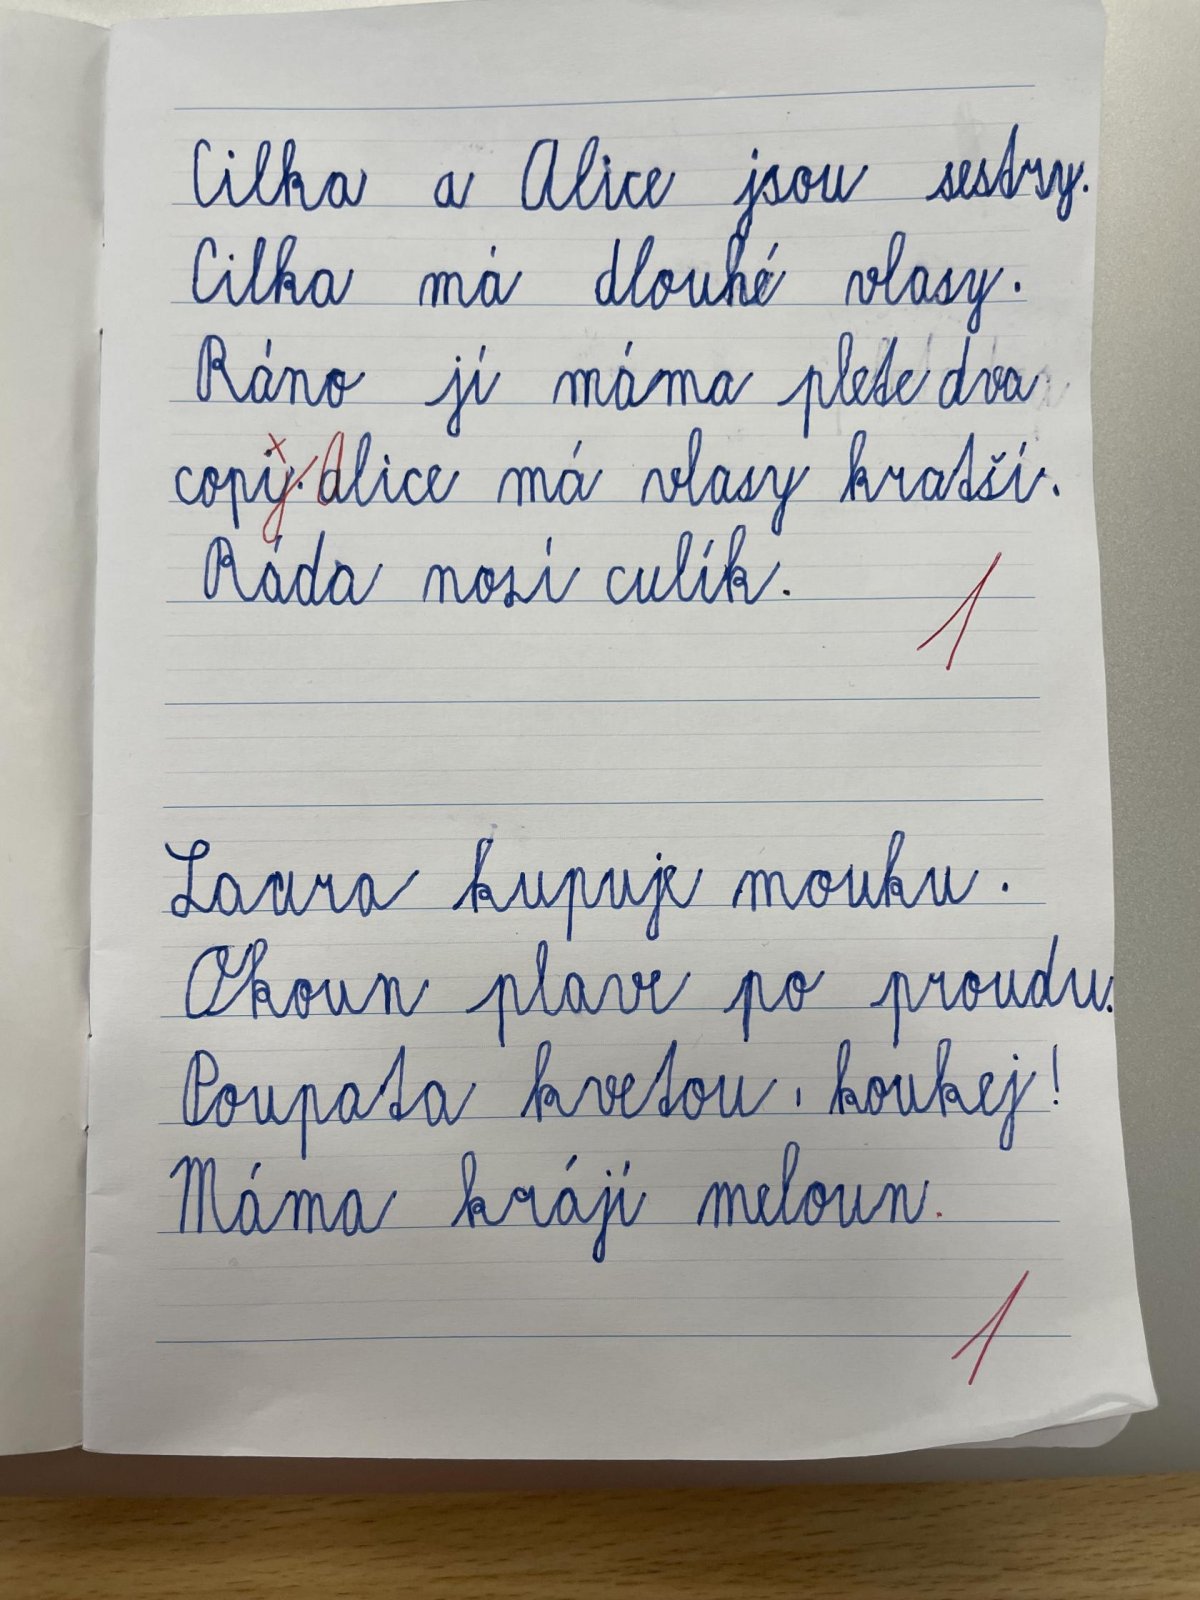 Cilka a Alice jsou sestry.
Cilka má dlouhé vlasy.
Ráno jí máma plete dva
copy. Alice má vlasy kratší.
Ráda nosí culík.
1
Laura kupuje mouku.
Okoun plave po proudu.
Poupata kvetou, koukej!
Máma krájí meloun.
1